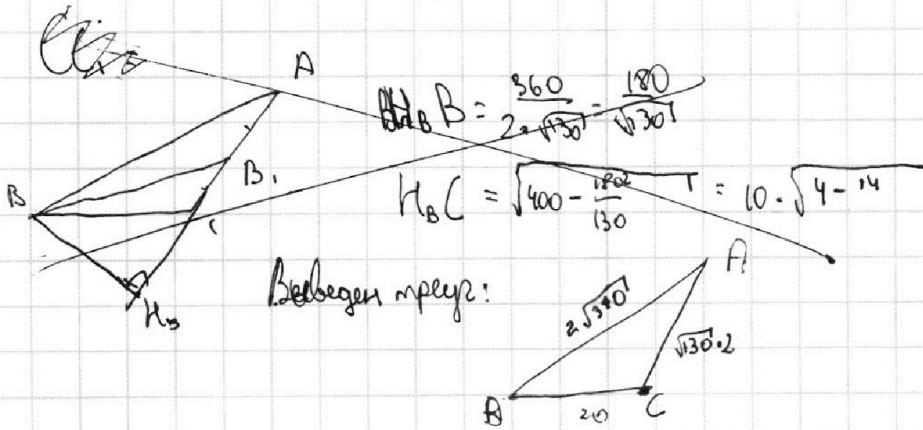 A
H_B B = \frac{360}{2 \cdot \sqrt{130}} = \frac{180}{\sqrt{130}}
B_1
B
H_B C = \sqrt{400 - \frac{180^2}{130}} = 10 \cdot \sqrt{4 - 14}
H_B
Выведен треуг:
A
2\sqrt{370}
\sqrt{130} \cdot 2
B
20
C